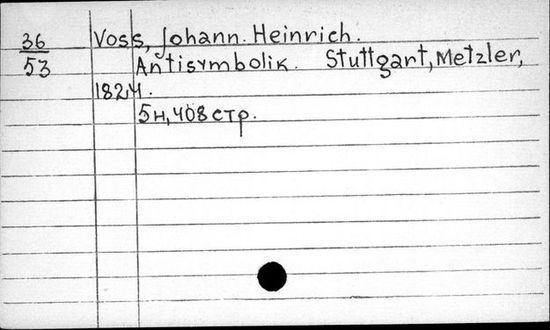 36 Voss, Johann Heinrich.
53 Antisymbolik. Stuttgart, Metzler,
1824.
5н, 408 стр.